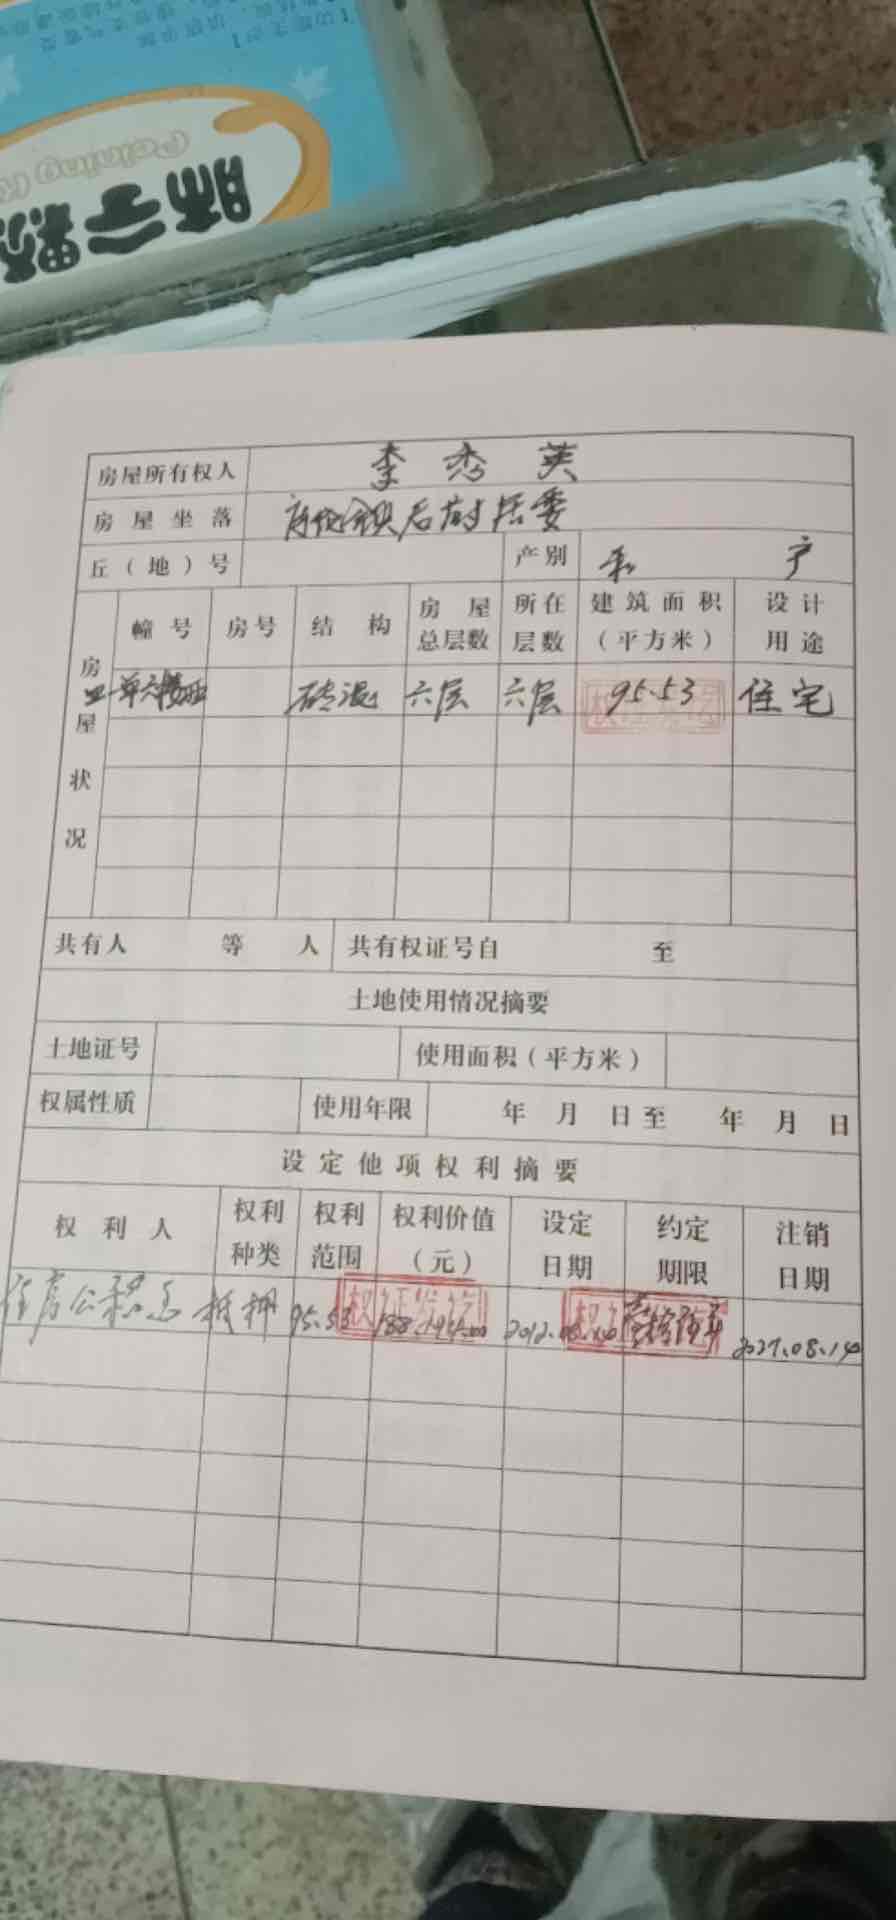 房屋所有权人 李秀英
房屋坐落 后村居委
丘（地）号 产别 私产
房屋状况
幢号 房号 结构 房屋总层数 所在层数 建筑面积（平方米） 设计用途
砖混 六层 六层 95.53 住宅
共有人 等 人 共有权证号自 至
土地使用情况摘要
土地证号 使用面积（平方米）
权属性质 使用年限 年 月 日至 年 月 日
设定他项权利摘要
权利人 权利种类 权利范围 权利价值（元） 设定日期 约定期限 注销日期
住房公积金 抵押 95.53 2027.08.14